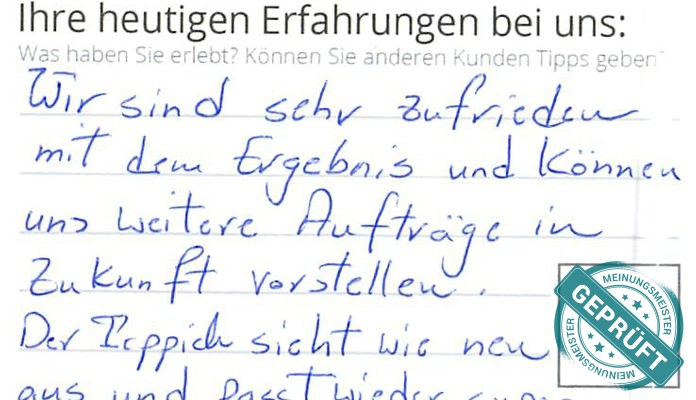 Ihre heutigen Erfahrungen bei uns:
Was haben Sie erlebt? Können Sie anderen Kunden Tipps geben
Wir sind sehr zufrieden
mit dem Ergebnis und können
uns weitere Aufträge in
Zukunft vorstellen.
Der Teppich sieht wie neu
aus und passt wieder
MEINUNGSMEISTER
GEPRÜFT
MEINUNGSMEISTER